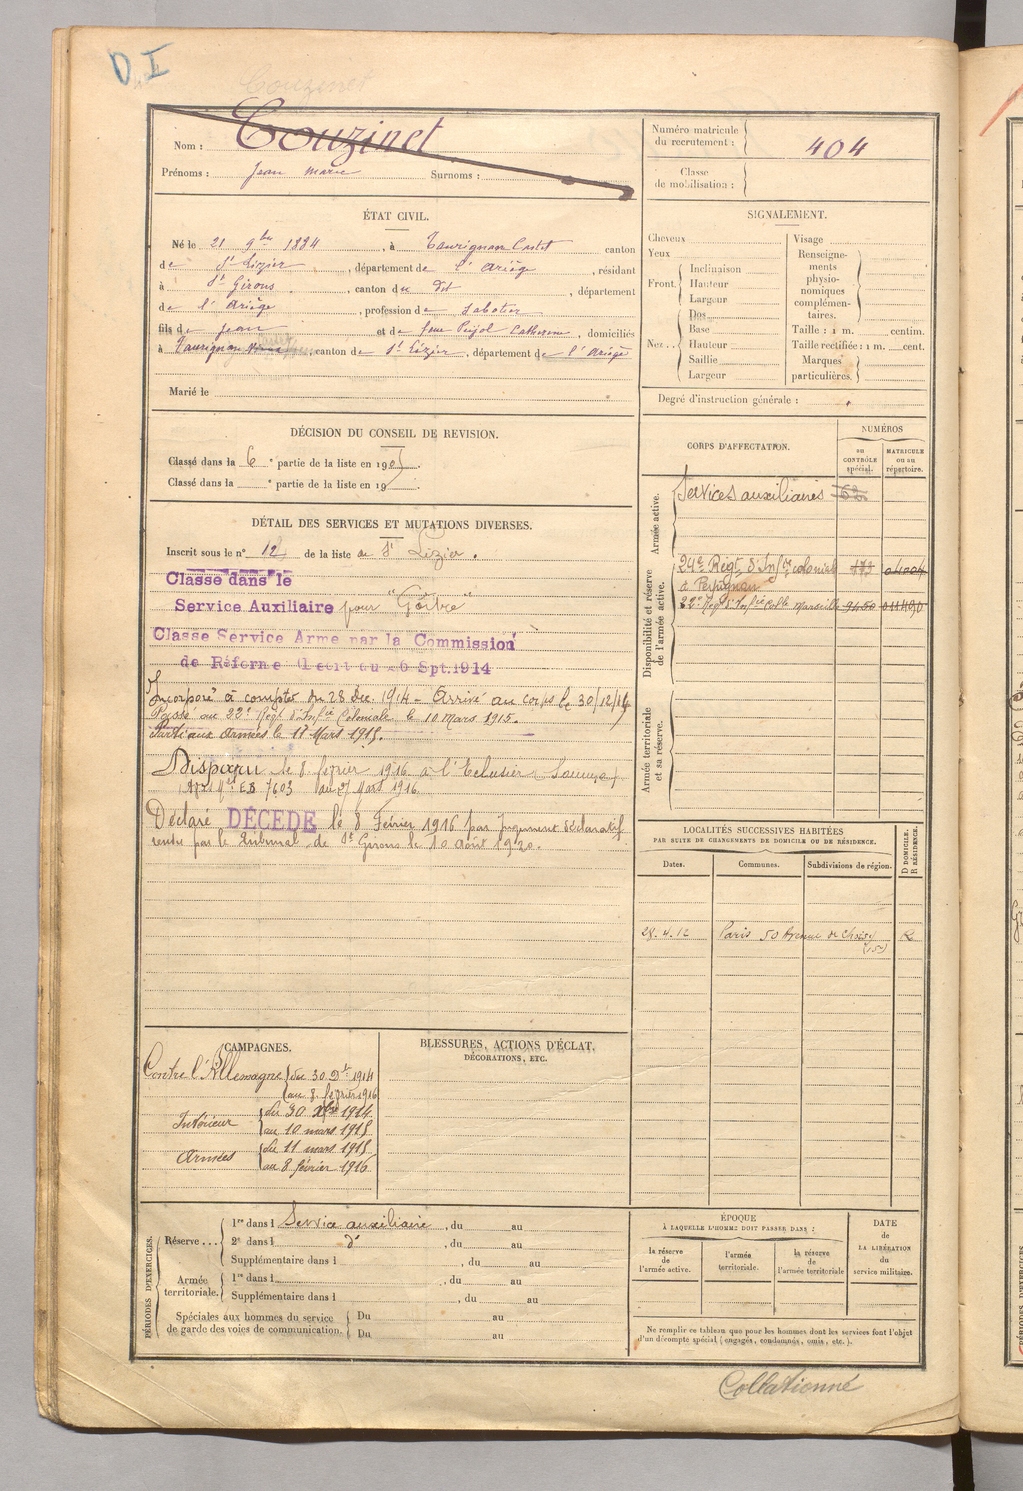 D.I
Couzinet
Nom : Couzinet
Prénoms : Jean Marie Surnoms :
Numéro matricule du recrutement : 404
Classe de mobilisation :
ÉTAT CIVIL.
Né le 21 9bre 1884, à Taurignan Castet canton
de St Lizier, département de l'Ariège, résidant
à St Girons, canton du dit, département
de l'Ariège, profession de sabotier
fils de Jean et de feue Pujol Catherine, domiciliés
à Taurignan Castet, canton de St Lizier, département de l'Ariège
Marié le
SIGNALEMENT.
Cheveux
Yeux
Front. Inclinaison
Hauteur
Largeur
Nez.. Dos
Base
Hauteur
Saillie
Largeur
Visage
Renseignements physionomiques complémentaires.
Taille : 1 m. centim.
Taille rectifiée : 1 m. cent.
Marques particulières.
Degré d'instruction générale :
DÉCISION DU CONSEIL DE REVISION.
Classé dans la 6e partie de la liste en 1905.
Classé dans la e partie de la liste en 19
DÉTAIL DES SERVICES ET MUTATIONS DIVERSES.
Inscrit sous le n° 12 de la liste de St Lizier.
Classé dans le
Service Auxiliaire pour "Goitre"
Classé Service Armé par la Commission
de Réforme Sept. 1914
Incorporé à compter du 28 Dec. 1914 - Arrivé au corps le 30/12/14
Passé au 22e Régt d'Infie Coloniale le 10 Mars 1915.
Parti aux armées le 11 Mars 1915.
Disparu le 8 février 1916 à l'Eclusier (Somme)
7603 du 27 Mars 1916
Déclaré DÉCÉDÉ le 8 Février 1916 par jugement déclaratif
rendu par le tribunal de St Girons le 10 Août 1920.
CORPS D'AFFECTATION.
NUMÉROS
au CONTRÔLE spécial.
MATRICULE ou au répertoire.
Armée active.
Services auxiliaires
Disponibilité et réserve de l'armée active.
24e Régt d'Infie coloniale
à Perpignan
22e Régt d'Infie Colle Marseille 9450 011490
Armée territoriale et sa réserve.
LOCALITÉS SUCCESSIVES HABITÉES
PAR SUITE DE CHANGEMENTS DE DOMICILE OU DE RÉSIDENCE.
Dates. Communes. Subdivisions de région. D DOMICILE. R RÉSIDENCE.
28.4.12 Paris 50 Avenue de Choisy R
CAMPAGNES.
Contre l'Allemagne du 30 Dbre 1914
au 8 février 1916
Intérieur du 30 Xbre 1914
au 10 mars 1915
Armées du 11 mars 1915
au 8 février 1916
BLESSURES, ACTIONS D'ÉCLAT,
DÉCORATIONS, ETC.
PÉRIODES D'EXERCICES.
Réserve... 1re dans l Service auxiliaire, du au
2e dans l do, du au
Supplémentaire dans l, du au
Armée territoriale. 1re dans l, du au
Supplémentaire dans l, du au
Spéciales aux hommes du service de garde des voies de communication. Du au
Du au
ÉPOQUE
À LAQUELLE L'HOMME DOIT PASSER DANS :
la réserve de l'armée active. l'armée territoriale. la réserve de l'armée territoriale
DATE de LA LIBÉRATION du service militaire.
Ne remplir ce tableau que pour les hommes dont les services font l'objet
d'un décompte spécial (engagés, condamnés, omis, etc.).
Collationné